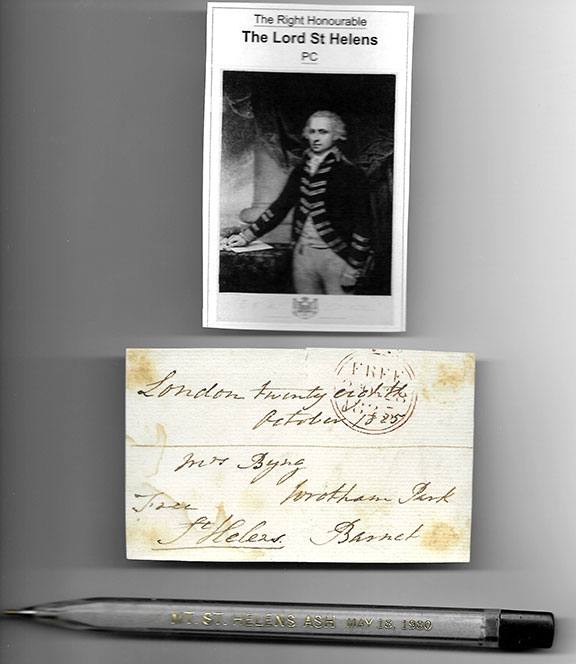 The Right Honourable
The Lord St Helens
PC
FREE
London twenty eighth
October 1825
Mrs Byng
Wrotham Park
Free
St Helens.
Barnet
MT. ST. HELENS ASH MAY 18, 1980